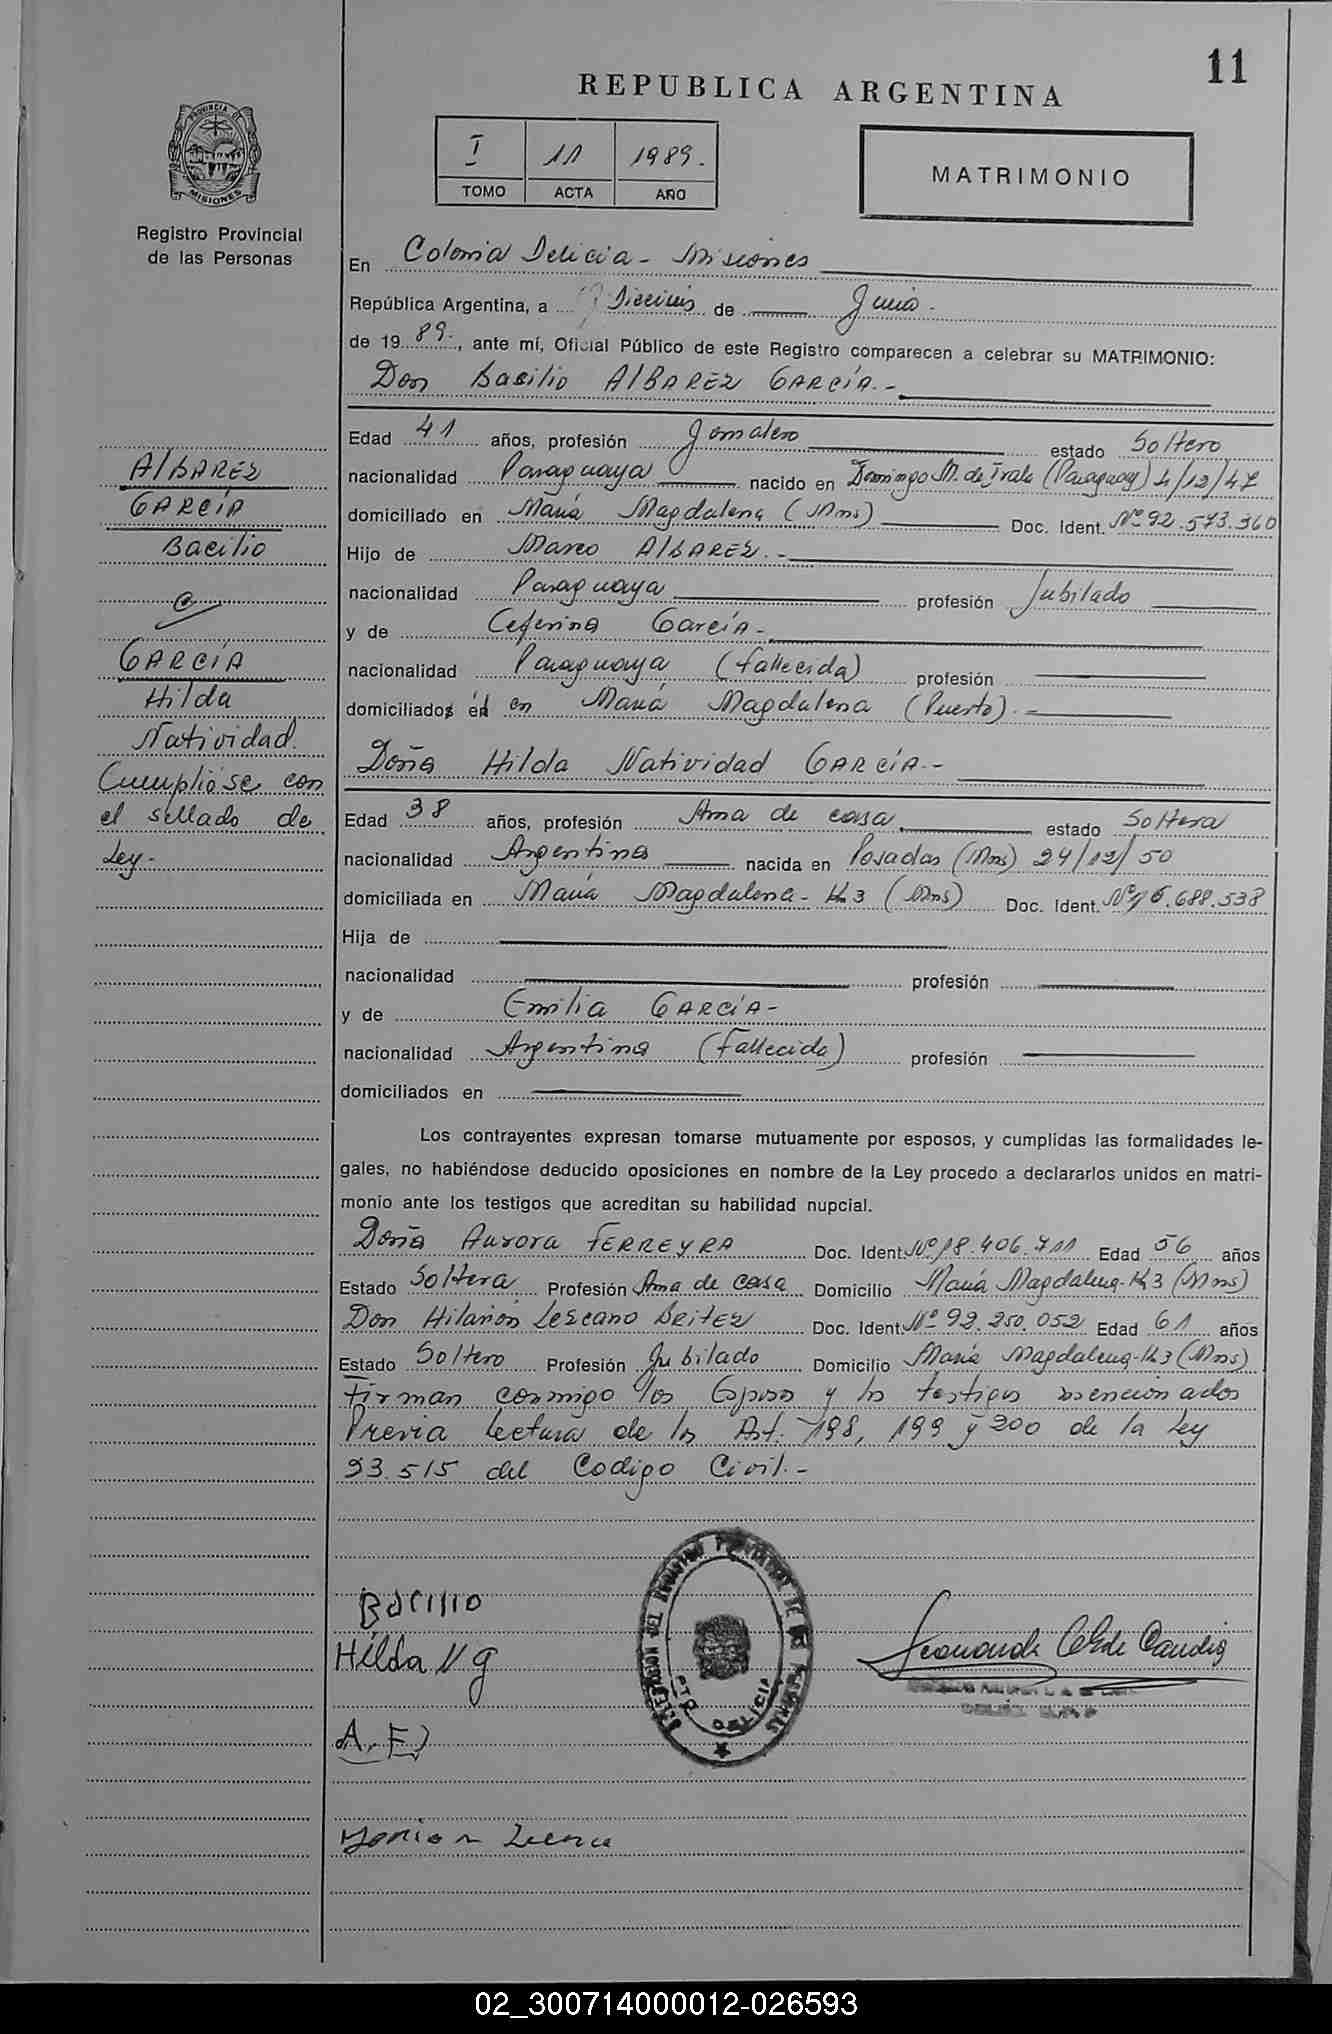 11
REPUBLICA ARGENTINA
PROVINCIA DE MISIONES
Registro Provincial
de las Personas
I 11 1989.
TOMO ACTA AÑO
MATRIMONIO
En Colonia Delicia - Misiones
República Argentina, a Dieciseis de Junio.
de 19 89., ante mí, Oficial Público de este Registro comparecen a celebrar su MATRIMONIO:
Don Basilio AlBAREZ GARCÍA.-
Edad 41 años, profesión Jornalero estado Soltero
nacionalidad Paraguaya nacido en Domingo M. de Irala (Paraguay) 4/12/47
domiciliado en María Magdalena (Mns) Doc. Ident. Nº 92.573.360
Hijo de Marco AlBAREZ.-
nacionalidad Paraguaya profesión Jubilado
y de Ceferina García-
nacionalidad Paraguaya (fallecida) profesión
domiciliados en en María Magdalena (Puerto).-
Doña Hilda Natividad GARCÍA.-
Edad 38 años, profesión Ama de casa estado Soltera
nacionalidad Argentina nacida en Posadas (Mns) 24/12/50
domiciliada en María Magdalena- K3 (Mns) Doc. Ident. Nº 16.688.538
Hija de
nacionalidad profesión
y de Emilia GARCÍA-
nacionalidad Argentina (Fallecida) profesión
domiciliados en
AlBAREZ
GARCÍA
Bacilio
c/
GARCÍA
Hilda
Natividad.
Cumplióse con
el sellado de
Ley-
Los contrayentes expresan tomarse mutuamente por esposos, y cumplidas las formalidades le-
gales, no habiéndose deducido oposiciones en nombre de la Ley procedo a declararlos unidos en matri-
monio ante los testigos que acreditan su habilidad nupcial.
Doña Aurora FERREYRA Doc. Ident. Nº 18.406.711 Edad 56 años
Estado Soltera Profesión Ama de casa Domicilio María Magdalena-K3 (Mns)
Don Hilarión Lezcano BRITEZ Doc. Ident. Nº 92.250.052 Edad 61 años
Estado Soltero Profesión Jubilado Domicilio María Magdalena-K3 (Mns)
Firman conmigo los Esposos y los testigos mencionados
Previa Lectura de los Art. 198, 199 y 200 de la Ley
23.515 del Codigo Civil.-
Bacilio
Hilda N g
A. F
DELEGACION DEL REGISTRO PROVINCIAL DE LAS PERSONAS
PTO. DELICIA
02_300714000012-026593